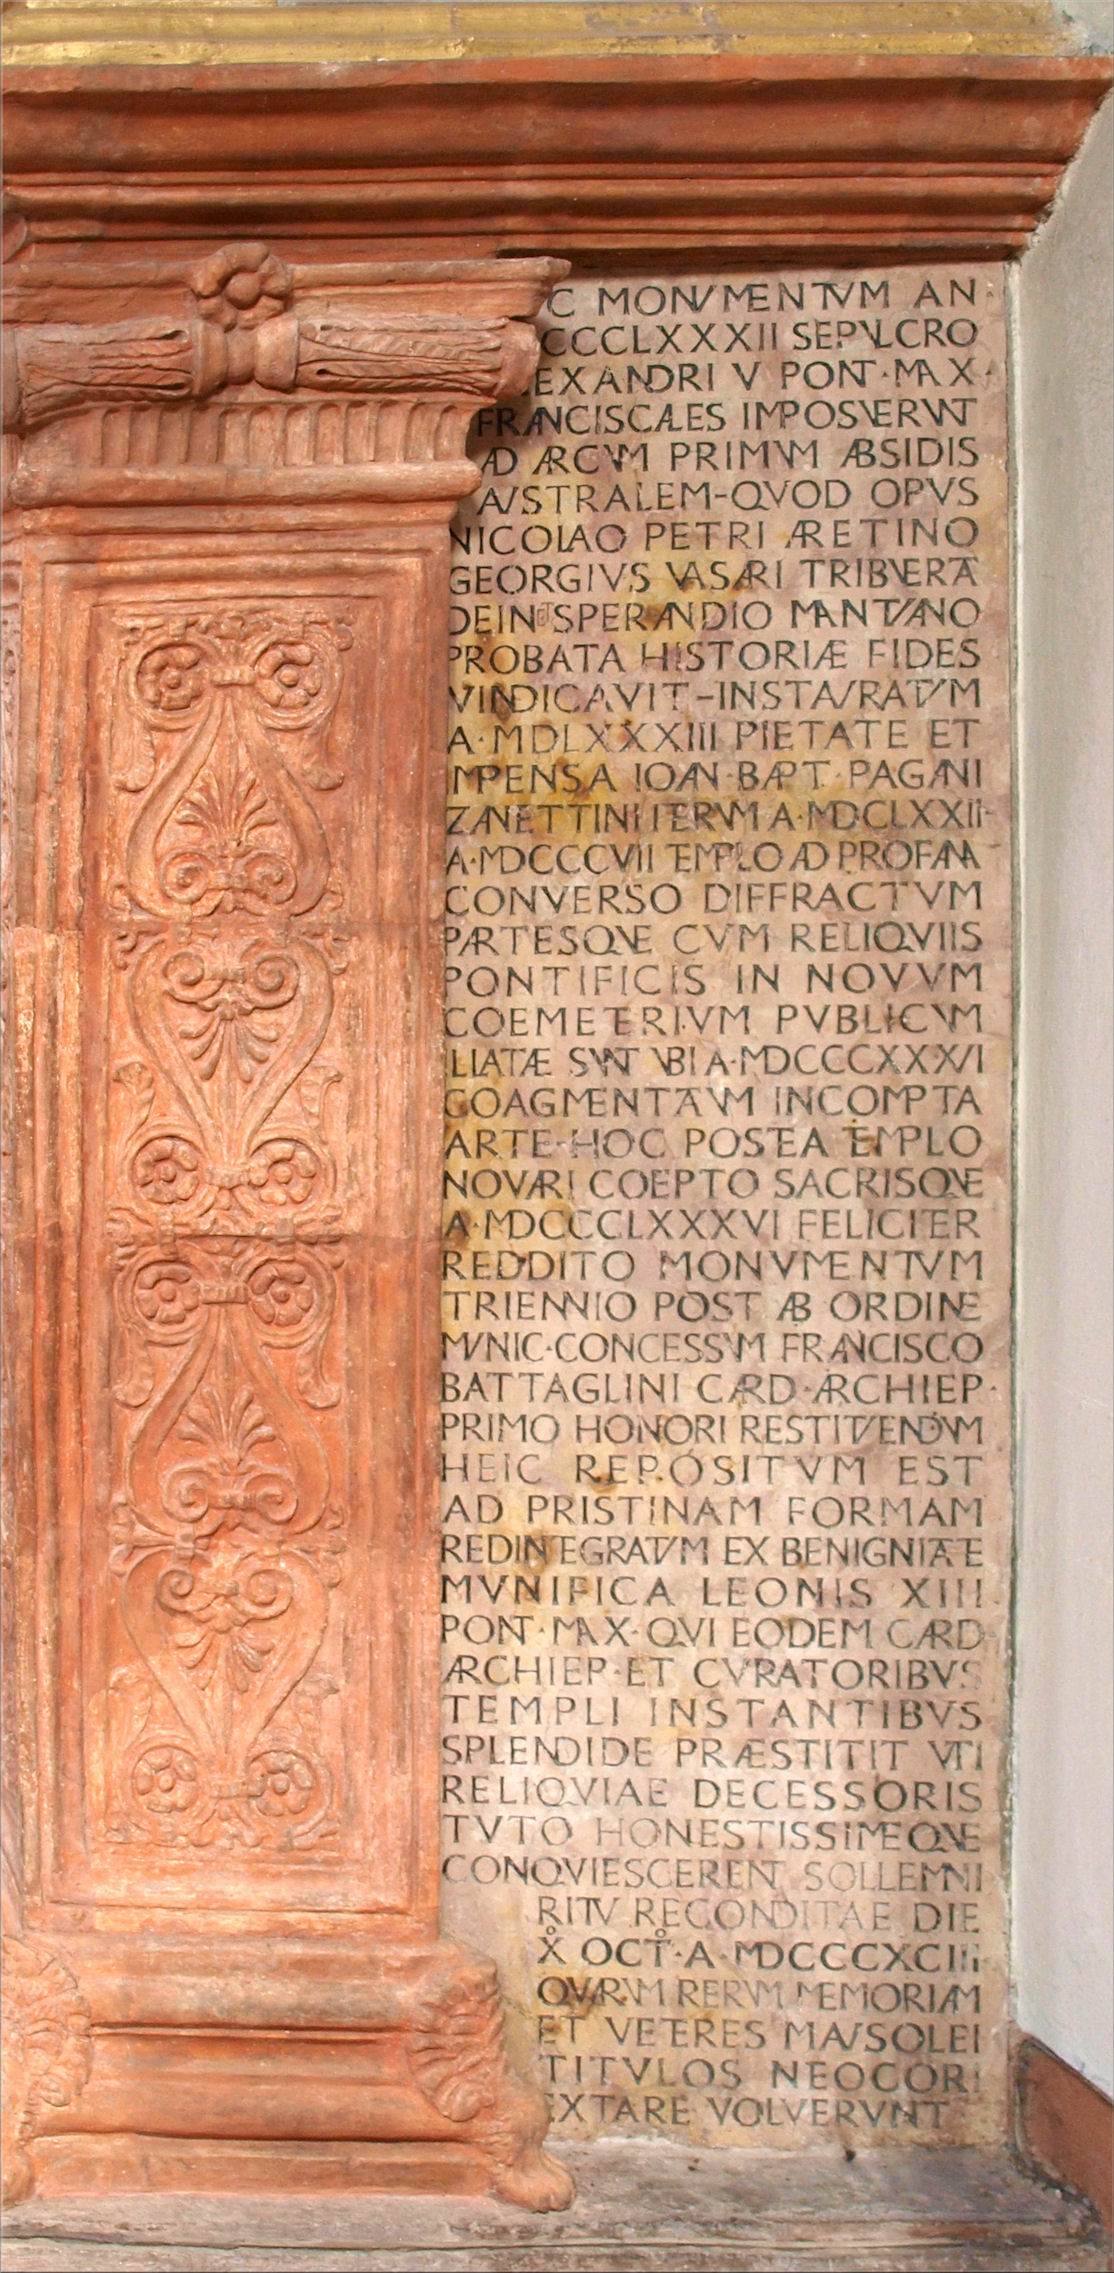 C MONVMENTVM AN
CCCCLXXXII SEPVLCRO
EXANDRI V PONT·MAX·
FRANCISCALES IMPOSVERVNT
AD ARCVM PRIMVM ABSIDIS
AVSTRALEM-QVOD OPVS
NICOLAO PETRI ARETINO
GEORGIVS VASARI TRIBVERAT
DEIN SPERANDIO MANTVANO
PROBATA HISTORIÆ FIDES
VINDICAVIT-INSTAVRATVM
A·MDLXXXXIII PIETATE ET
IMPENSA IOAN·BAPT·PAGANI
ZANETTINI ITERVM A·MDCLXXII·
A·MDCCCVII TEMPLO AD PROFANA
CONVERSO DIFFRACTVM
PARTESQVE CVM RELIQVIIS
PONTIFICIS IN NOVVM
COEMETERIVM PVBLICVM
ILLATÆ SVNT VBI A·MDCCCXXXVI
COAGMENTATVM INCOMPTA
ARTE·HOC POSTEA TEMPLO
NOVARI COEPTO SACRISQVE
A·MDCCCLXXXVI FELICITER
REDDITO MONVMENTVM
TRIENNIO POST AB ORDINE
MVNIC·CONCESSVM FRANCISCO
BATTAGLINI CARD·ARCHIEP·
PRIMO HONORI RESTITVENDVM
HEIC REPOSITVM EST
AD PRISTINAM FORMAM
REDINTEGRATVM EX BENIGNITATE
MVNIFICA LEONIS XIII
PONT·MAX·QVI EODEM CARD·
ARCHIEP·ET CVRATORIBVS
TEMPLI INSTANTIBVS
SPLENDIDE PRÆSTITIT VTI
RELIQVIAE DECESSORIS
TVTO HONESTISSIMEQVE
CONQVIESCERENT SOLLEMNI
RITV RECONDITAE DIE
X̊ OCT̊·A·MDCCCXCIII·
QVARVM RERVM MEMORIAM
ET VETERES MAVSOLEI
TITVLOS NEOCORI
EXTARE VOLVERVNT